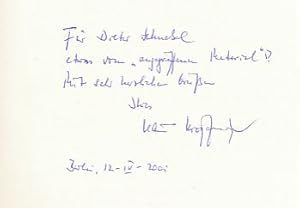 Für Dieter Schnebel
etwas vom „angegriffenen Material“!
Mit sehr herzlichen Grüßen
Ihr
Berlin, 12-IV-2001